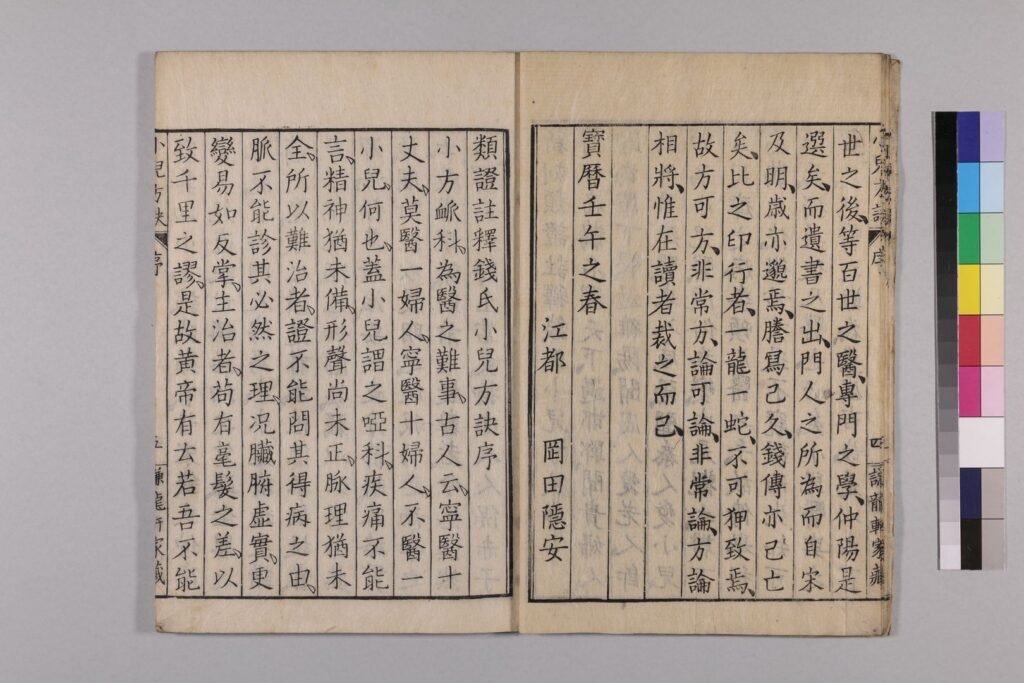 世之後等百世之醫、專門之學、仲陽是
選矣、而遺書之出、門人之所為而自宋
及明、歳亦邈焉、謄寫已久、錢傳亦已亡
矣、比之印行者、一龍一蛇、不可狎致焉、
故方可方、非常方、論可論、非常論、方論
相將、惟在讀者裁之而已、
寶曆壬午之春
江都　岡田隱安
類證註釋錢氏小兒方訣序
小方衇科、為醫之難事、古人云、寧醫十
丈夫、莫醫一婦人、寧醫十婦人、不醫一
小兒、何也、蓋小兒謂之啞科、疾痛不能
言、精神猶未備、形聲尚未正、脈理猶未
全、所以難治者、證不能問其得病之由、
脈不能診其必然之理、況臟腑虛實、更
變易如反掌、主治者、苟有毫髮之差、以
致千里之謬、是故黄帝有云若吾不能
小兒方訣　序　五　謙龍軒家藏